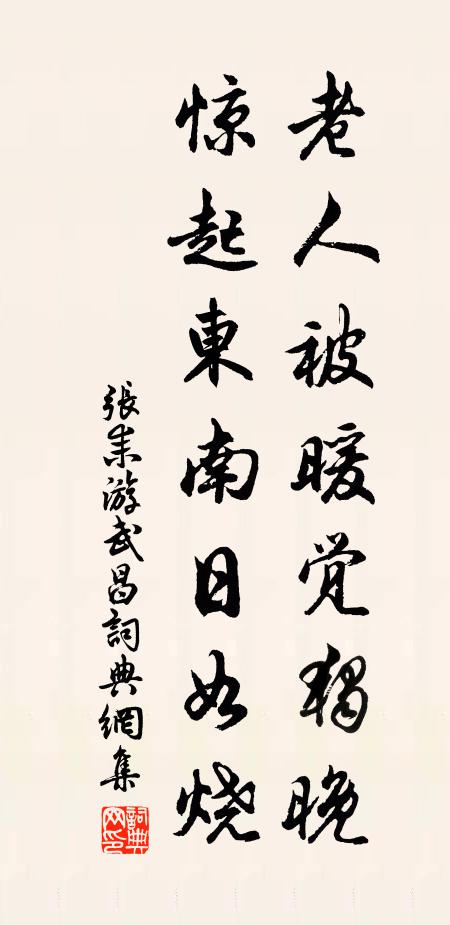 老人被暖觉獨晚
惊起東南日如烧
張耒游武昌詞典網集
詞典網印